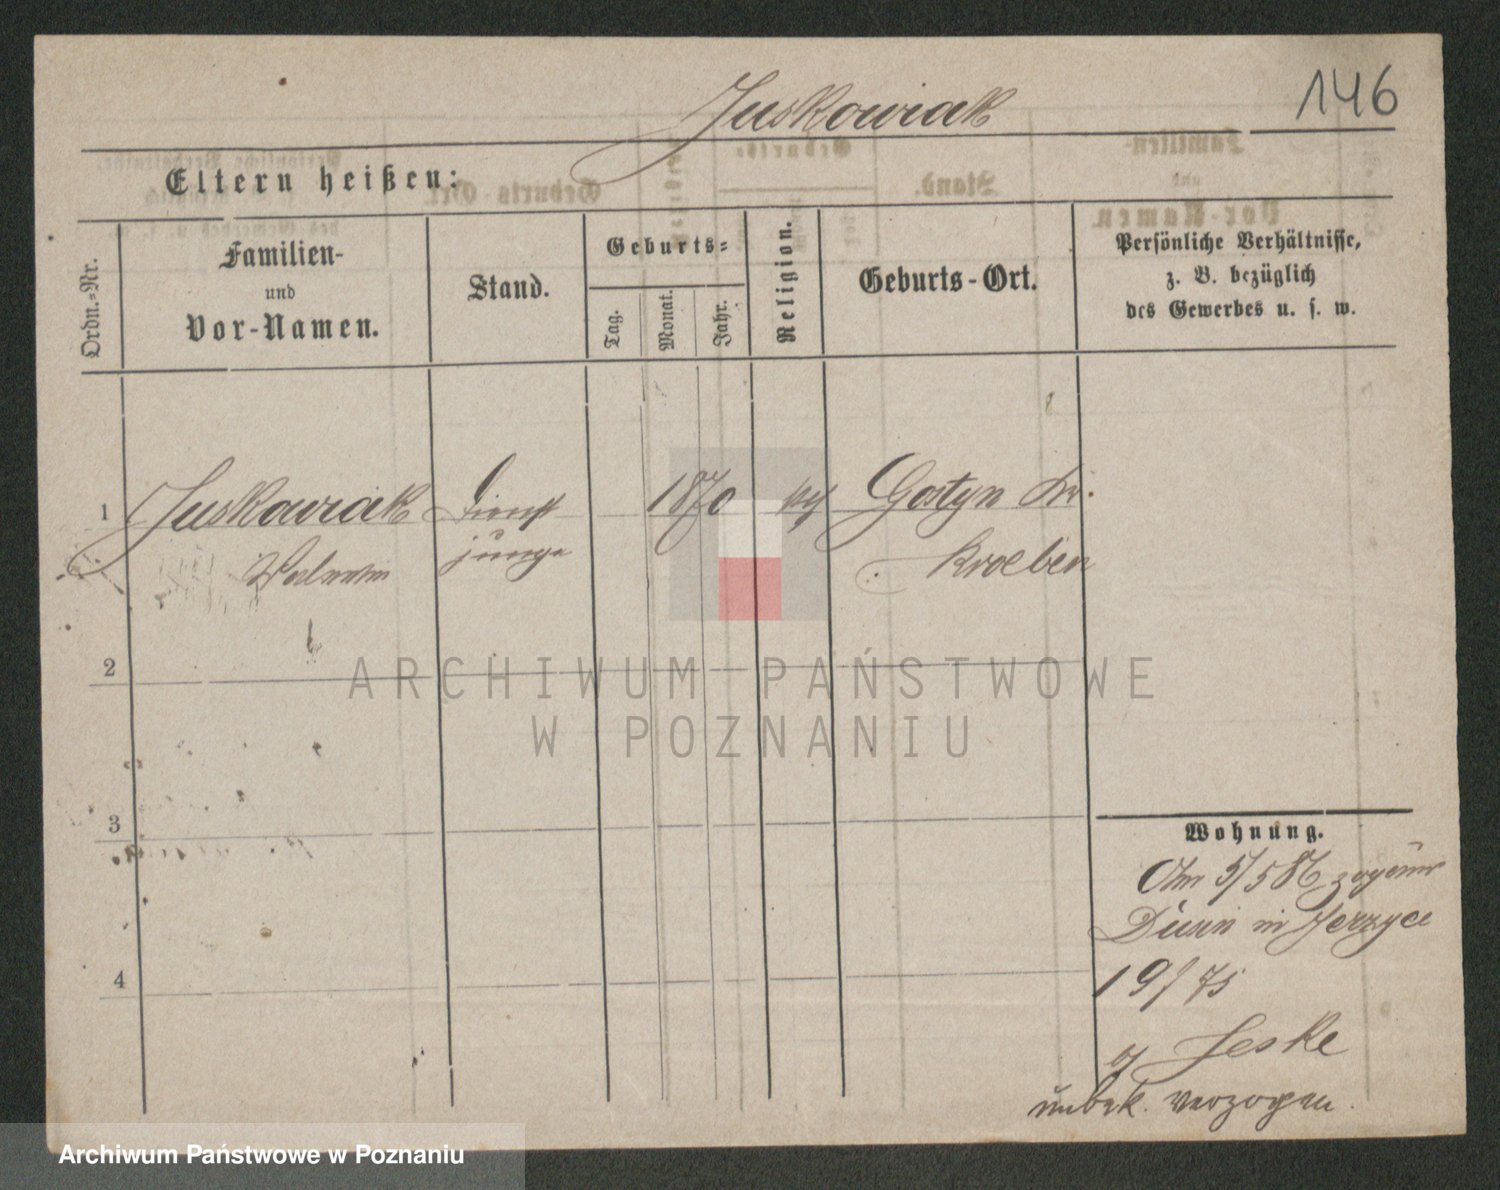 Juskowiak
146
Eltern heißen:
Ordn.=Nr.
Familien-
und
Vor-Namen.
Stand.
Geburts=
Tag.
Monat.
Jahr.
Religion.
Geburts-Ort.
Persönliche Verhältnisse,
z. B. bezüglich
des Gewerbes u. s. w.
1 Juskowiak Dienst 1870 Gostyn Kr.
junge Kroeben
2
ARCHIWUM PAŃSTWOWE
W POZNANIU
3
Wohnung.
5/5 86
in Jerzyce
4
19/ 75
Jeske
unbek. verzogen.
Archiwum Państwowe w Poznaniu